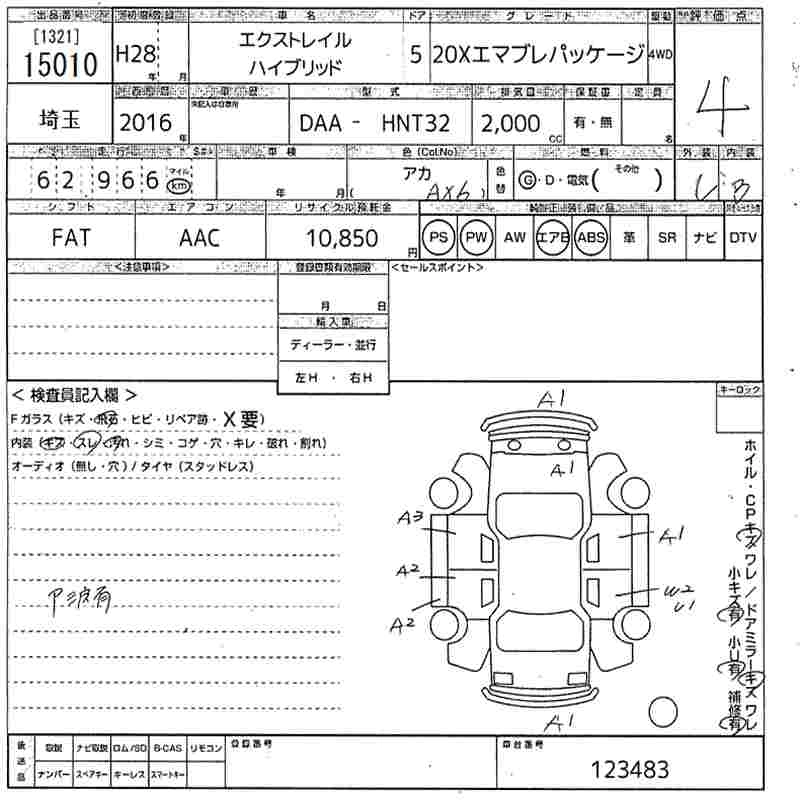 出品番号 初度登録 車名 ドア グレード 駆動 評価点
[1321]
15010 H28 年 月 エクストレイル ハイブリッド 5 20Xエマブレパッケージ 4WD 4
車歴 型式 排気量 保証書 定員
埼玉 2016年 DAA - HNT32 2,000 CC 有・無 名
走行 車検 色(Col.No) 燃料 外装 内装
62966 マイル km 年 月 アカ ( AX6 ) 色替 G・D・電気( その他 ) B
シフト エアコン リサイクル預託金
FAT AAC 10,850 円 PS PW AW エアB ABS 革 SR ナビ DTV
<注意事項> 登録書類有効期限 <セールスポイント>
月 日
輸入車
ディーラー・並行
左H ・ 右H
< 検査員記入欄 > キーロック
Fガラス (キズ・飛石・ヒビ・リペア苗・X要)
内装 (キズ・スレ・汚れ・シミ・コゲ・穴・キレ・破れ・割れ)
オーディオ (無し・穴) / タイヤ (スタッドレス)
A1
A1
A3 A1
A2 W2
U1
A2
A1
ホイル・CPキズワレ/ドアミラーキズワレ
小キズ有 小U有 補修有
後送品 取説 ナビ取説 ロム/SD B-CAS リモコン 登録番号 車台番号
ナンバー スペアキー キーレス スマートキー 123483